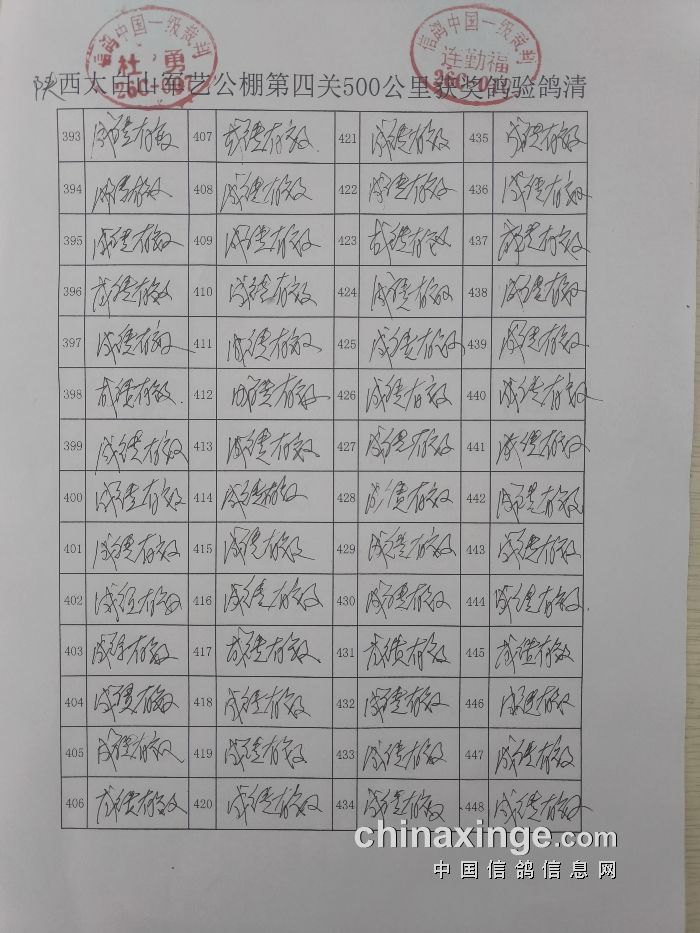 信鸽中国一级裁判
杜 勇
信鸽中国一级裁判
连勤福
陕西太白山 艺公棚第四关500公里获奖鸽验鸽清
393 成绩有效 407 成绩有效 421 成绩有效 435 成绩有效
394 成绩有效 408 成绩有效 422 成绩有效 436 成绩有效
395 成绩有效 409 成绩有效 423 成绩有效 437 成绩有效
396 成绩有效 410 成绩有效 424 成绩有效 438 成绩有效
397 成绩有效 411 成绩有效 425 成绩有效 439 成绩有效
398 成绩有效 412 成绩有效 426 成绩有效 440 成绩有效
399 成绩有效 413 成绩有效 427 成绩有效 441 成绩有效
400 成绩有效 414 成绩有效 428 成绩有效 442 成绩有效
401 成绩有效 415 成绩有效 429 成绩有效 443 成绩有效
402 成绩有效 416 成绩有效 430 成绩有效 444 成绩有效
403 成绩有效 417 成绩有效 431 成绩有效 445 成绩有效
404 成绩有效 418 成绩有效 432 成绩有效 446 成绩有效
405 成绩有效 419 成绩有效 433 成绩有效 447 成绩有效
406 成绩有效 420 成绩有效 434 成绩有效 448 成绩有效
chinaxinge.com
中国信鸽信息网